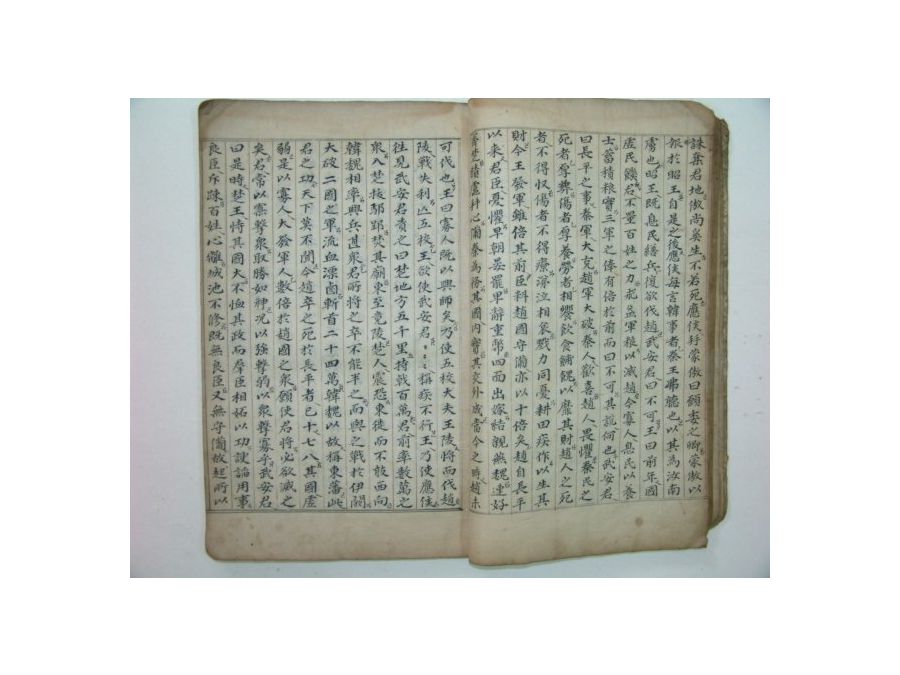 誅奪君地傲尚奚生不若死應侯拜蒙傲曰願委之卿蒙傲以
報於昭王自是之後應侯每言韓事者秦王弗聽也以其爲汝南
虜也昭王旣息民繕兵復欲伐趙武安君曰不可王曰前年國
虛民饑君不量百姓之力求益軍粮以滅趙今寡人息民以養
士蓄積粮實三軍之俸有倍於前而曰不可其說何也武安君
曰長平之事秦軍大克趙軍大破秦人歡喜趙人畏懼秦民之
死者厚葬傷者厚養勞者相饗飮食餔餽以靡其財趙人之死
者不得收傷者不得療涕泣相哀戮力同憂耕田疾作以生其
財今王發軍雖倍其前臣料趙國守備亦以十倍矣趙自長平
以來君臣憂懼早朝晏罷卑辭重幣四面出嫁結親燕魏連好
齊楚積慮幷心備秦爲務其國內實其交外成當今之時趙未
可伐也王曰寡人旣以興師矣乃使五校大夫王陵將而伐趙
陵戰失利亡五校王欲使武安君〻〻〻稱疾不行王乃使應侯
往見武安君責之曰楚地方五千里持戟百萬君前率數萬之
衆入楚拔鄢郢焚其廟東至竟陵楚人震恐東徙而不敢西向
韓魏相率興兵甚衆君所將之卒不能半之而與之戰於伊闕
大破二國之軍流血漂鹵斬首二十四萬韓魏以故稱東藩此
君之功天下莫不聞今趙卒之死於長平者已十七八其國虛
弱是以寡人大發軍人數倍於趙國之衆願使君將必欲滅之
矣君常以寡擊衆取勝如神况以強擊弱以衆擊寡乎武安君
曰是時楚王恃其國大不恤其政而羣臣相妬以功諛諂用事
良臣斥疎百姓心離城池不修旣無良臣又無守備故起所以